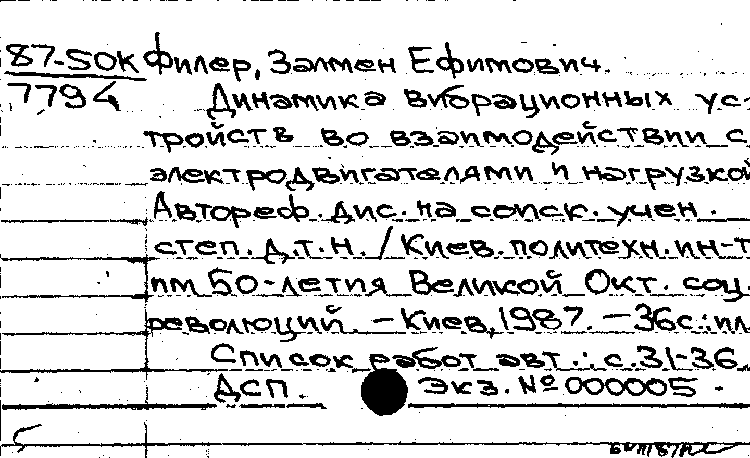 87-5ОК Филер, Залмен Ефимович.
7794 Динамика вибрационных ус-
тройств во взаимодействии с
электродвигателями и нагрузкой
Автореф. дис. на соиск. учен.
степ. д.т.н. / Киев. политехн. ин-т
им 50-летия Великой Окт. соц.
революций. – Киев, 1987. – 36с.: ил
Список работ авт.: с. 31-36
ДСП. Экз. № 000005.